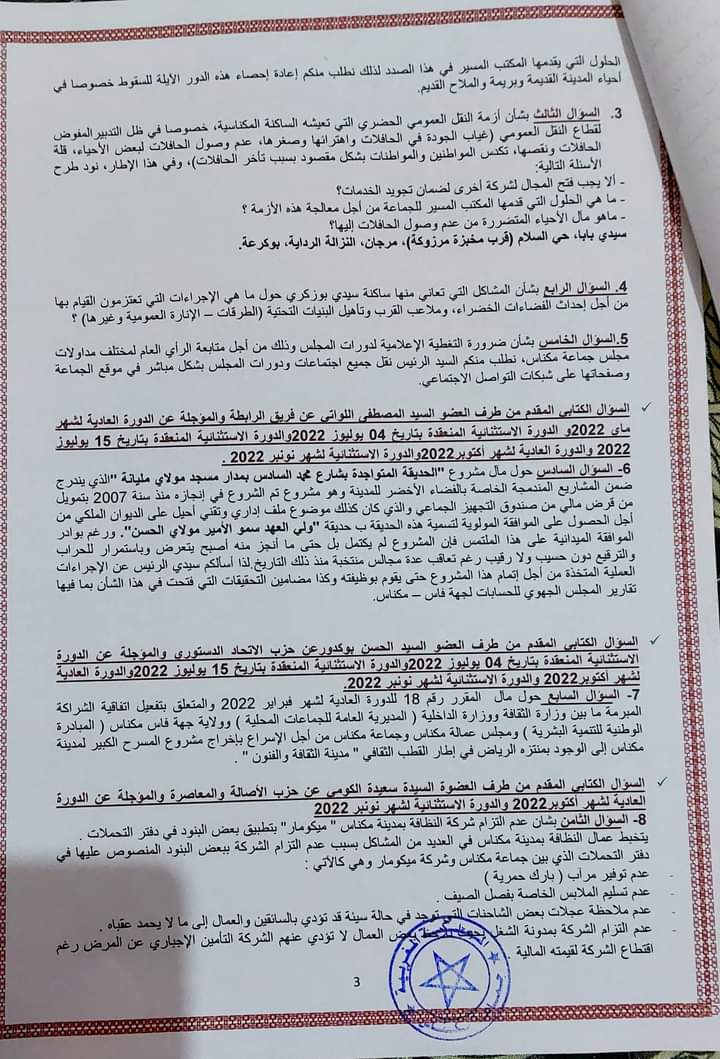 الحلول التي يقدمها المكتب المسير في هذا الصدد لذلك نطلب منكم إعادة إحصاء هذه الدور الآيلة للسقوط خصوصا في
أحياء المدينة القديمة وبريمة والملاح القديم.
3. السؤال الثالث بشأن أزمة النقل العمومي الحضري التي تعيشه الساكنة المكناسية، خصوصا في ظل التدبير المفوض
لقطاع النقل العمومي (غياب الجودة في الحافلات واهترائها وصغرها، عدم وصول الحافلات لبعض الأحياء، قلة
الحافلات ونقصها، تكدس المواطنين والمواطنات بشكل مقصود بسبب تأخر الحافلات)، وفي هذا الإطار، نود طرح
الأسئلة التالية:
- ألا يجب فتح المجال لشركة أخرى لضمان تجويد الخدمات؟
- ما هي الحلول التي قدمها المكتب المسير للجماعة من أجل معالجة هذه الأزمة ؟
- ماهو مآل الأحياء المتضررة من عدم وصول الحافلات إليها؟
سيدي بابا، حي السلام (قرب مخبزة مرزوكة)، مرجان، النزالة الرداية، بوكرعة.
4. السؤال الرابع بشأن المشاكل التي تعاني منها ساكنة سيدي بوزكري حول ما هي الإجراءات التي تعتزمون القيام بها
من أجل إحداث الفضاءات الخضراء، وملاعب القرب وتأهيل البنيات التحتية (الطرقات – الإنارة العمومية وغيرها) ؟
5.السؤال الخامس بشأن ضرورة التغطية الإعلامية لدورات المجلس وذلك من أجل متابعة الرأي العام لمختلف مداولات
مجلس جماعة مكناس، نطلب منكم السيد الرئيس نقل جميع اجتماعات ودورات المجلس بشكل مباشر في موقع الجماعة
وصفحاتها على شبكات التواصل الاجتماعي.
✓ السؤال الكتابي المقدم من طرف العضو السيد المصطفى اللواتي عن فريق الرابطة والمؤجلة عن الدورة العادية لشهر
ماي 2022و الدورة الاستثنائية المنعقدة بتاريخ 04 يوليوز 2022والدورة الاستثنائية المنعقدة بتاريخ 15 يوليوز
2022 والدورة العادية لشهر أكتوبر2022والدورة الاستثنائية لشهر نونبر 2022 .
6- السؤال السادس حول مآل مشروع "الحديقة المتواجدة بشارع محمد السادس بمدار مسجد مولاي مليانة "الذي يندرج
ضمن المشاريع المندمجة الخاصة بالفضاء الأخضر للمدينة وهو مشروع تم الشروع في إنجازه منذ سنة 2007 بتمويل
من قرض مالي من صندوق التجهيز الجماعي والذي كان كذلك موضوع ملف إداري وتقني أحيل على الديوان الملكي من
أجل الحصول على الموافقة المولوية لتسمية هذه الحديقة ب حديقة "ولي العهد سمو الأمير مولاي الحسن". ورغم بوادر
الموافقة الميدانية على هذا الملتمس فإن المشروع لم يكتمل بل حتى ما أنجز منه أصبح يتعرض وباستمرار للخراب
والترقيع دون حسيب ولا رقيب رغم تعاقب عدة مجالس منتخبة منذ ذلك التاريخ.لذا أسألكم سيدي الرئيس عن الإجراءات
العملية المتخذة من أجل إتمام هذا المشروع حتى يقوم بوظيفته وكذا مضامين التحقيقات التي فتحت في هذا الشأن بما فيها
تقارير المجلس الجهوي للحسابات لجهة فاس – مكناس.
✓ السؤال الكتابي المقدم من طرف العضو السيد الحسن بوكدورعن حزب الاتحاد الدستوري والمؤجلة عن الدورة
الاستثنائية المنعقدة بتاريخ 04 يوليوز 2022والدورة الاستثنائية المنعقدة بتاريخ 15 يوليوز 2022والدورة العادية
لشهر أكتوبر2022 والدورة الاستثنائية لشهر نونبر 2022.
7- السؤال السابع حول مآل المقرر رقم 18 للدورة العادية لشهر فبراير 2022 والمتعلق بتفعيل اتفاقية الشراكة
المبرمة ما بين وزارة الثقافة ووزارة الداخلية ( المديرية العامة للجماعات المحلية ) وولاية جهة فاس مكناس ( المبادرة
الوطنية للتنمية البشرية ) ومجلس عمالة مكناس وجماعة مكناس من أجل الإسراع بإخراج مشروع المسرح الكبير لمدينة
مكناس إلى الوجود بمنتزه الرياض في إطار القطب الثقافي " مدينة الثقافة والفنون " .
✓ السؤال الكتابي المقدم من طرف العضوة السيدة سعيدة الكومي عن حزب الأصالة والمعاصرة والمؤجلة عن الدورة
العادية لشهر أكتوبر2022 والدورة الاستثنائية لشهر نونبر 2022
8- السؤال الثامن بشان عدم التزام شركة النظافة بمدينة مكناس " ميكومار" بتطبيق بعض البنود في دفتر التحملات .
يتخبط عمال النظافة بمدينة مكناس في العديد من المشاكل بسبب عدم التزام الشركة ببعض البنود المنصوص عليها في
دفتر التحملات الذي بين جماعة مكناس وشركة ميكومار وهي كالآتي :
- عدم توفير مرآب ( بارك حمرية )
- عدم تسليم الملابس الخاصة بفصل الصيف .
- عدم ملاحظة عجلات بعض الشاحنات التي توجد في حالة سيئة قد تؤدي بالسائقين والعمال إلى ما لا يحمد عقباه .
- عدم التزام الشركة بمدونة الشغل بعض العمال لا تؤدي عنهم الشركة التأمين الإجباري عن المرض رغم
اقتطاع الشركة لقيمته المالية .
3